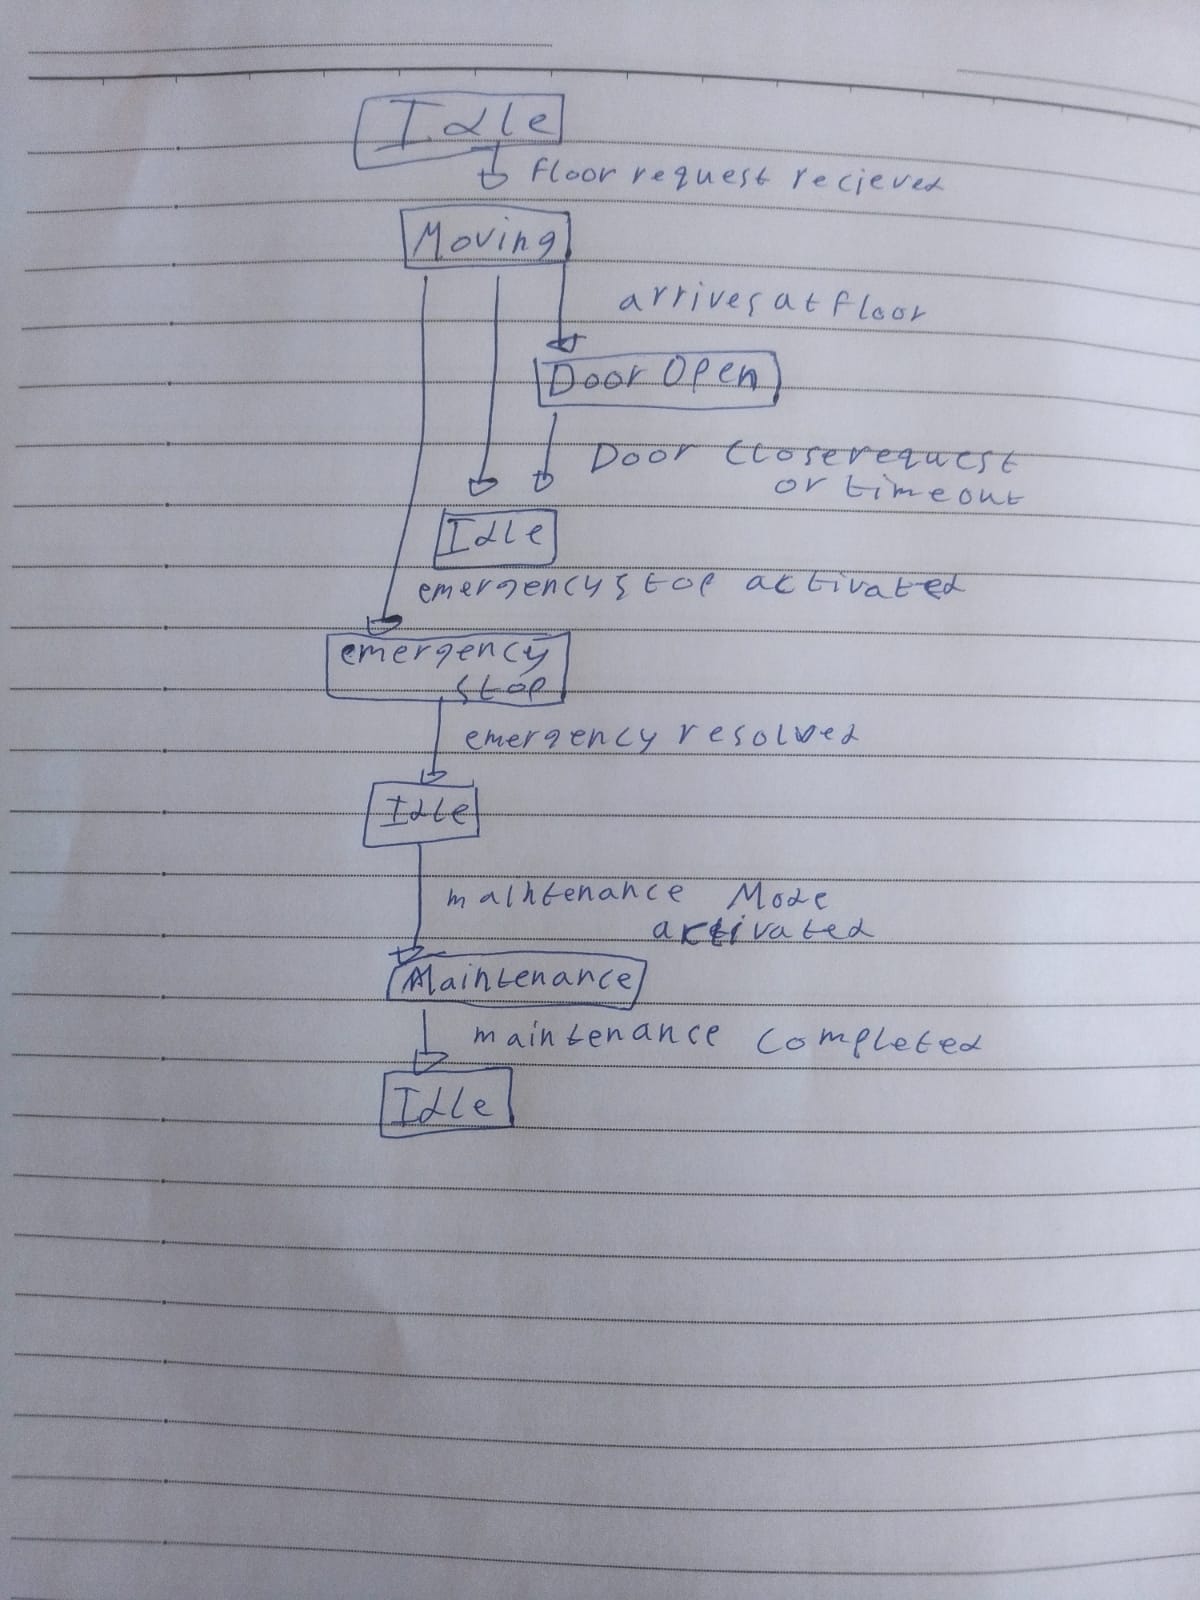 Idle
floor request recieved
Moving
arrives at floor
Door Open
Door Close request
or timeout
Idle
emergency stop activated
emergency
stop
emergency resolved
Idle
maintenance Mode
activated
Maintenance
maintenance completed
Idle